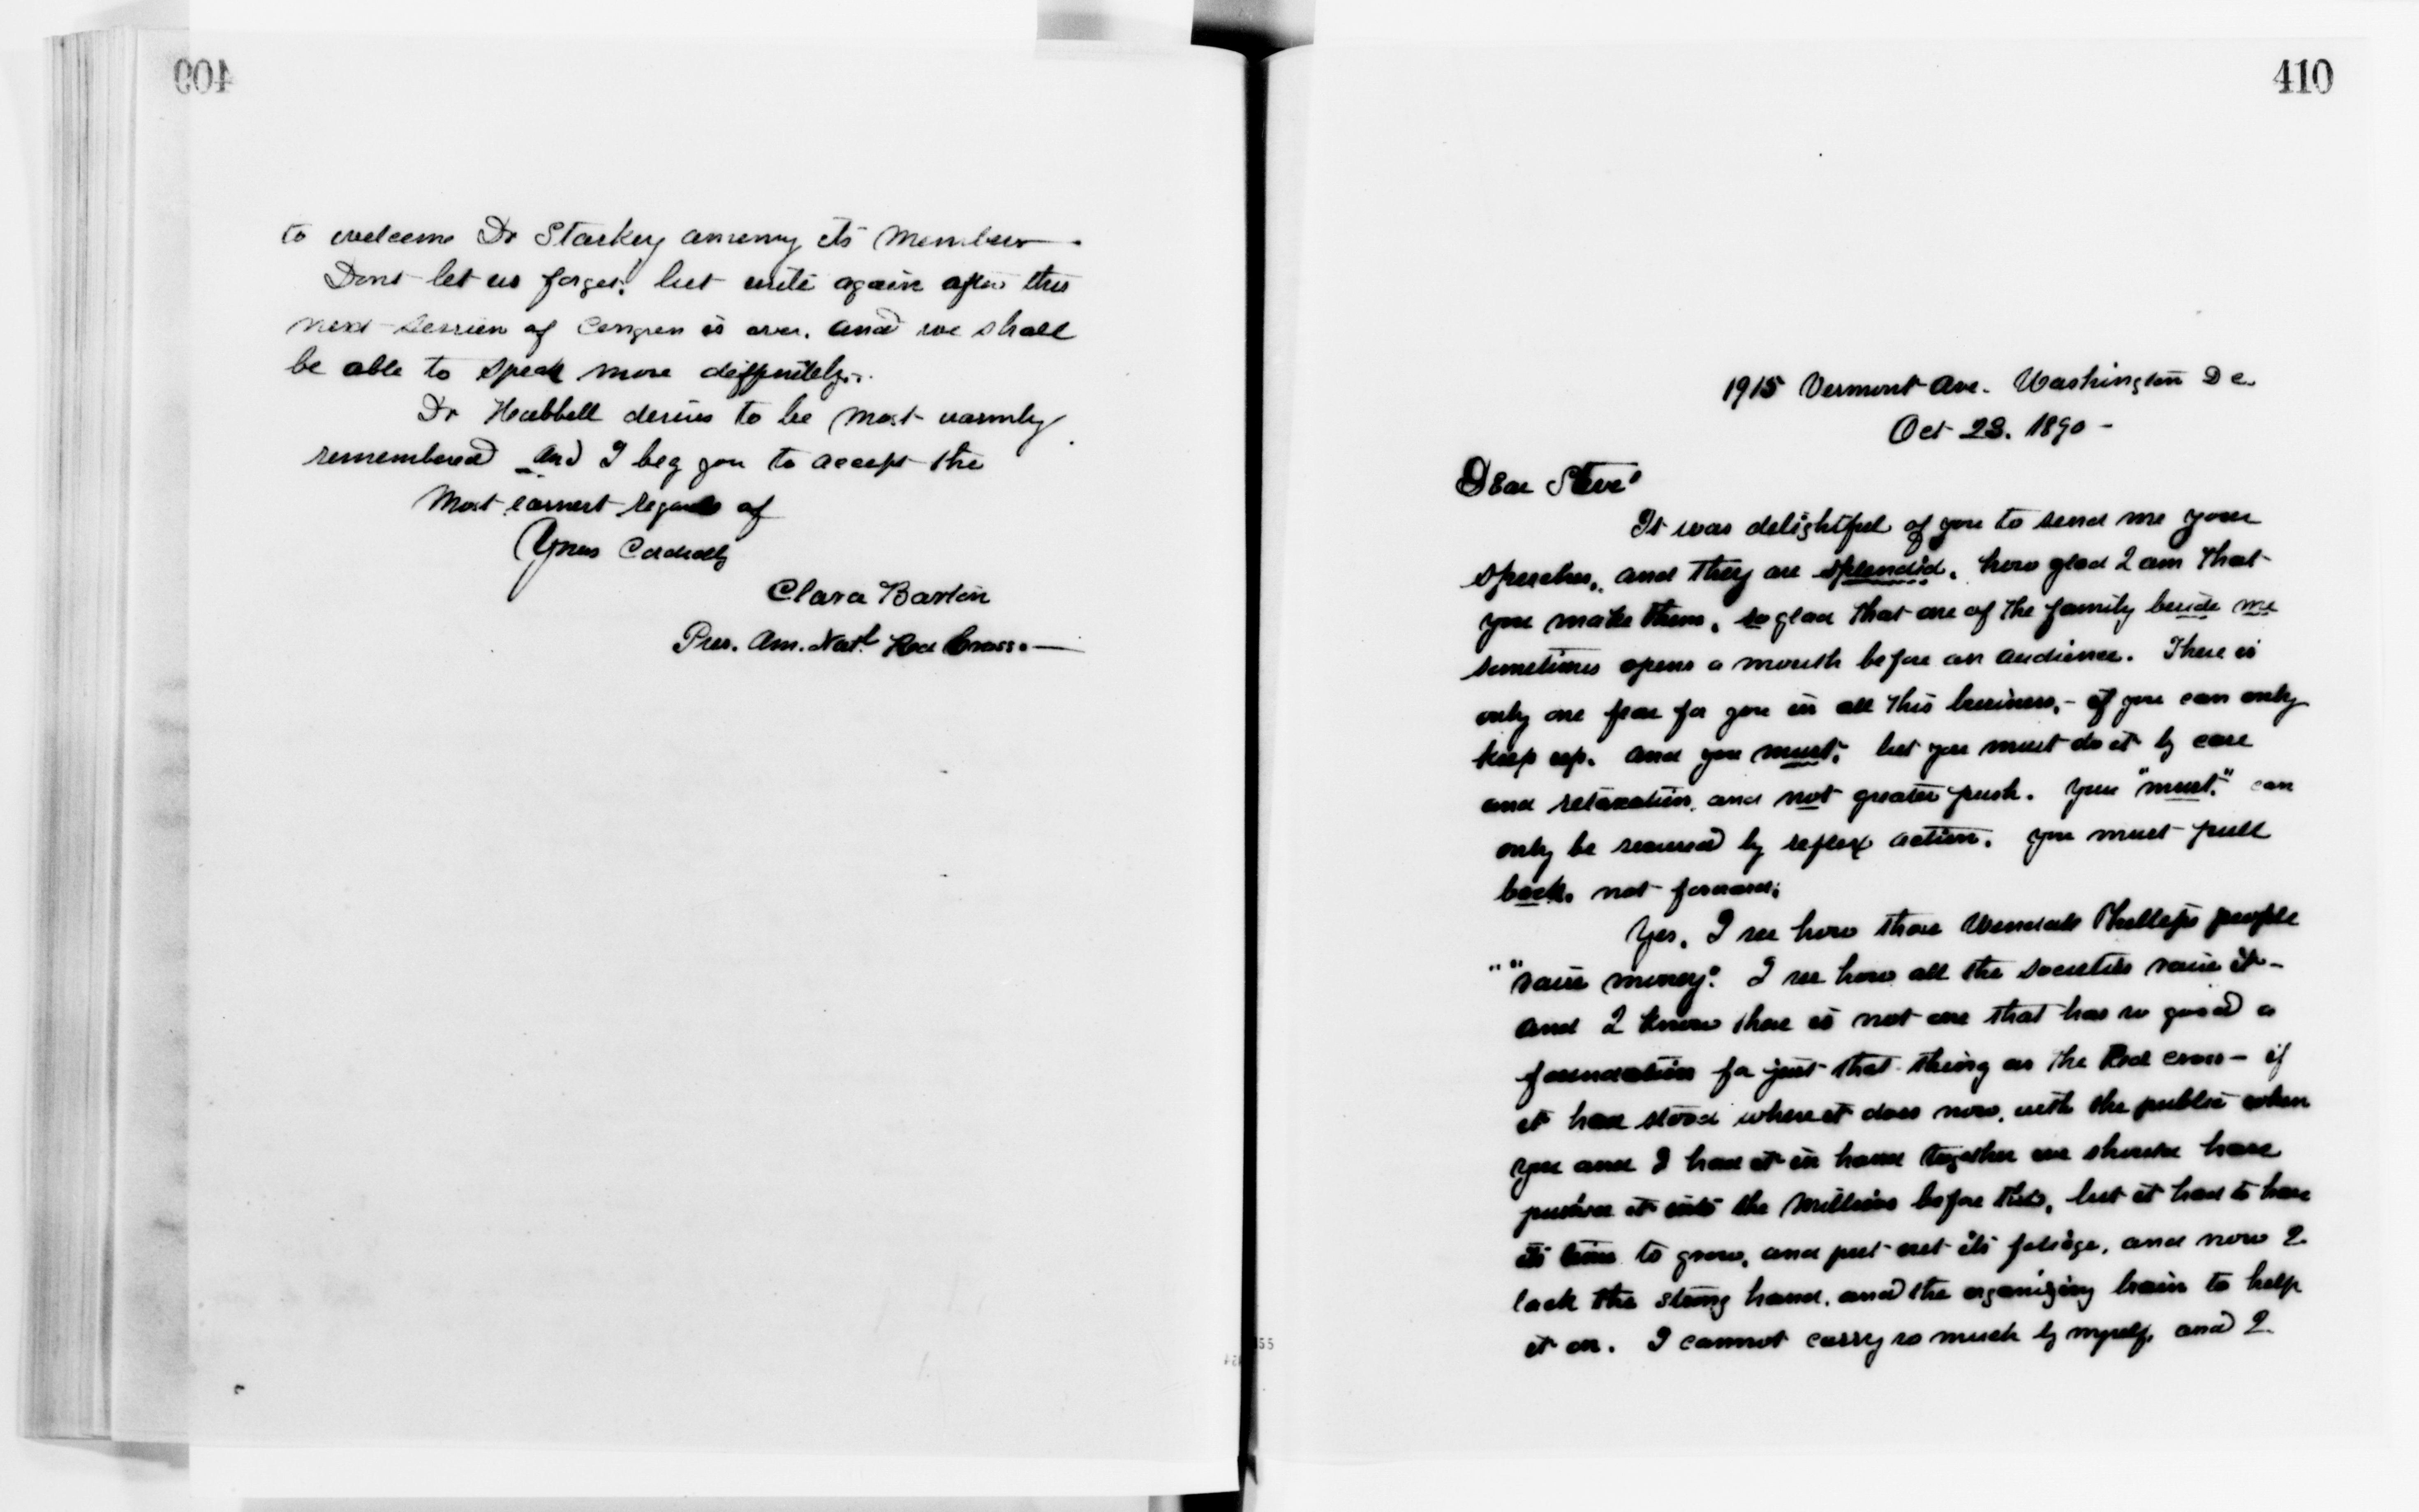 409
to welcome Dr Starkey among its members.
Dont let us forget, but write again after this
next session of Congress is over, and we shall
be able to speak more deffinitely.
Dr Hubbell desires to be most warmly
remembered and I beg you to accept the
most earnest regards of
Yours Cordially
Clara Barton
Pres. Am. Natl Red Cross.
410
1915 Vermont Ave. Washington D C.
Oct 23. 1890 -
Dear Steve
It was delightful of you to send me your
speeches, and they are splendid, how glad I am that
you make them, so glad that one of the family beside me
sometimes opens a mouth before an audience. There is
only one fear for you in all this business, - if you can only
keep up. and you must, but you must do it by care
and relaxation, and not greater push. You "must," can
only be secured by reflex action. you must pull
back, not forward;
Yes, I see how those Wendall Phillips people
""raise money". I see how all the societies raise it -
and I know there is not one that has so good a
foundation for just that thing as the Red Cross - if
it had stood where it does now, with the public when
you and I had it in hand together we should have
pushed it into the millions before this, but it had to have
its time to grow, and put out its foliage, and now I
lack the strong hand, and the organizing brain to help
it on. I cannot carry so much by myself, and I